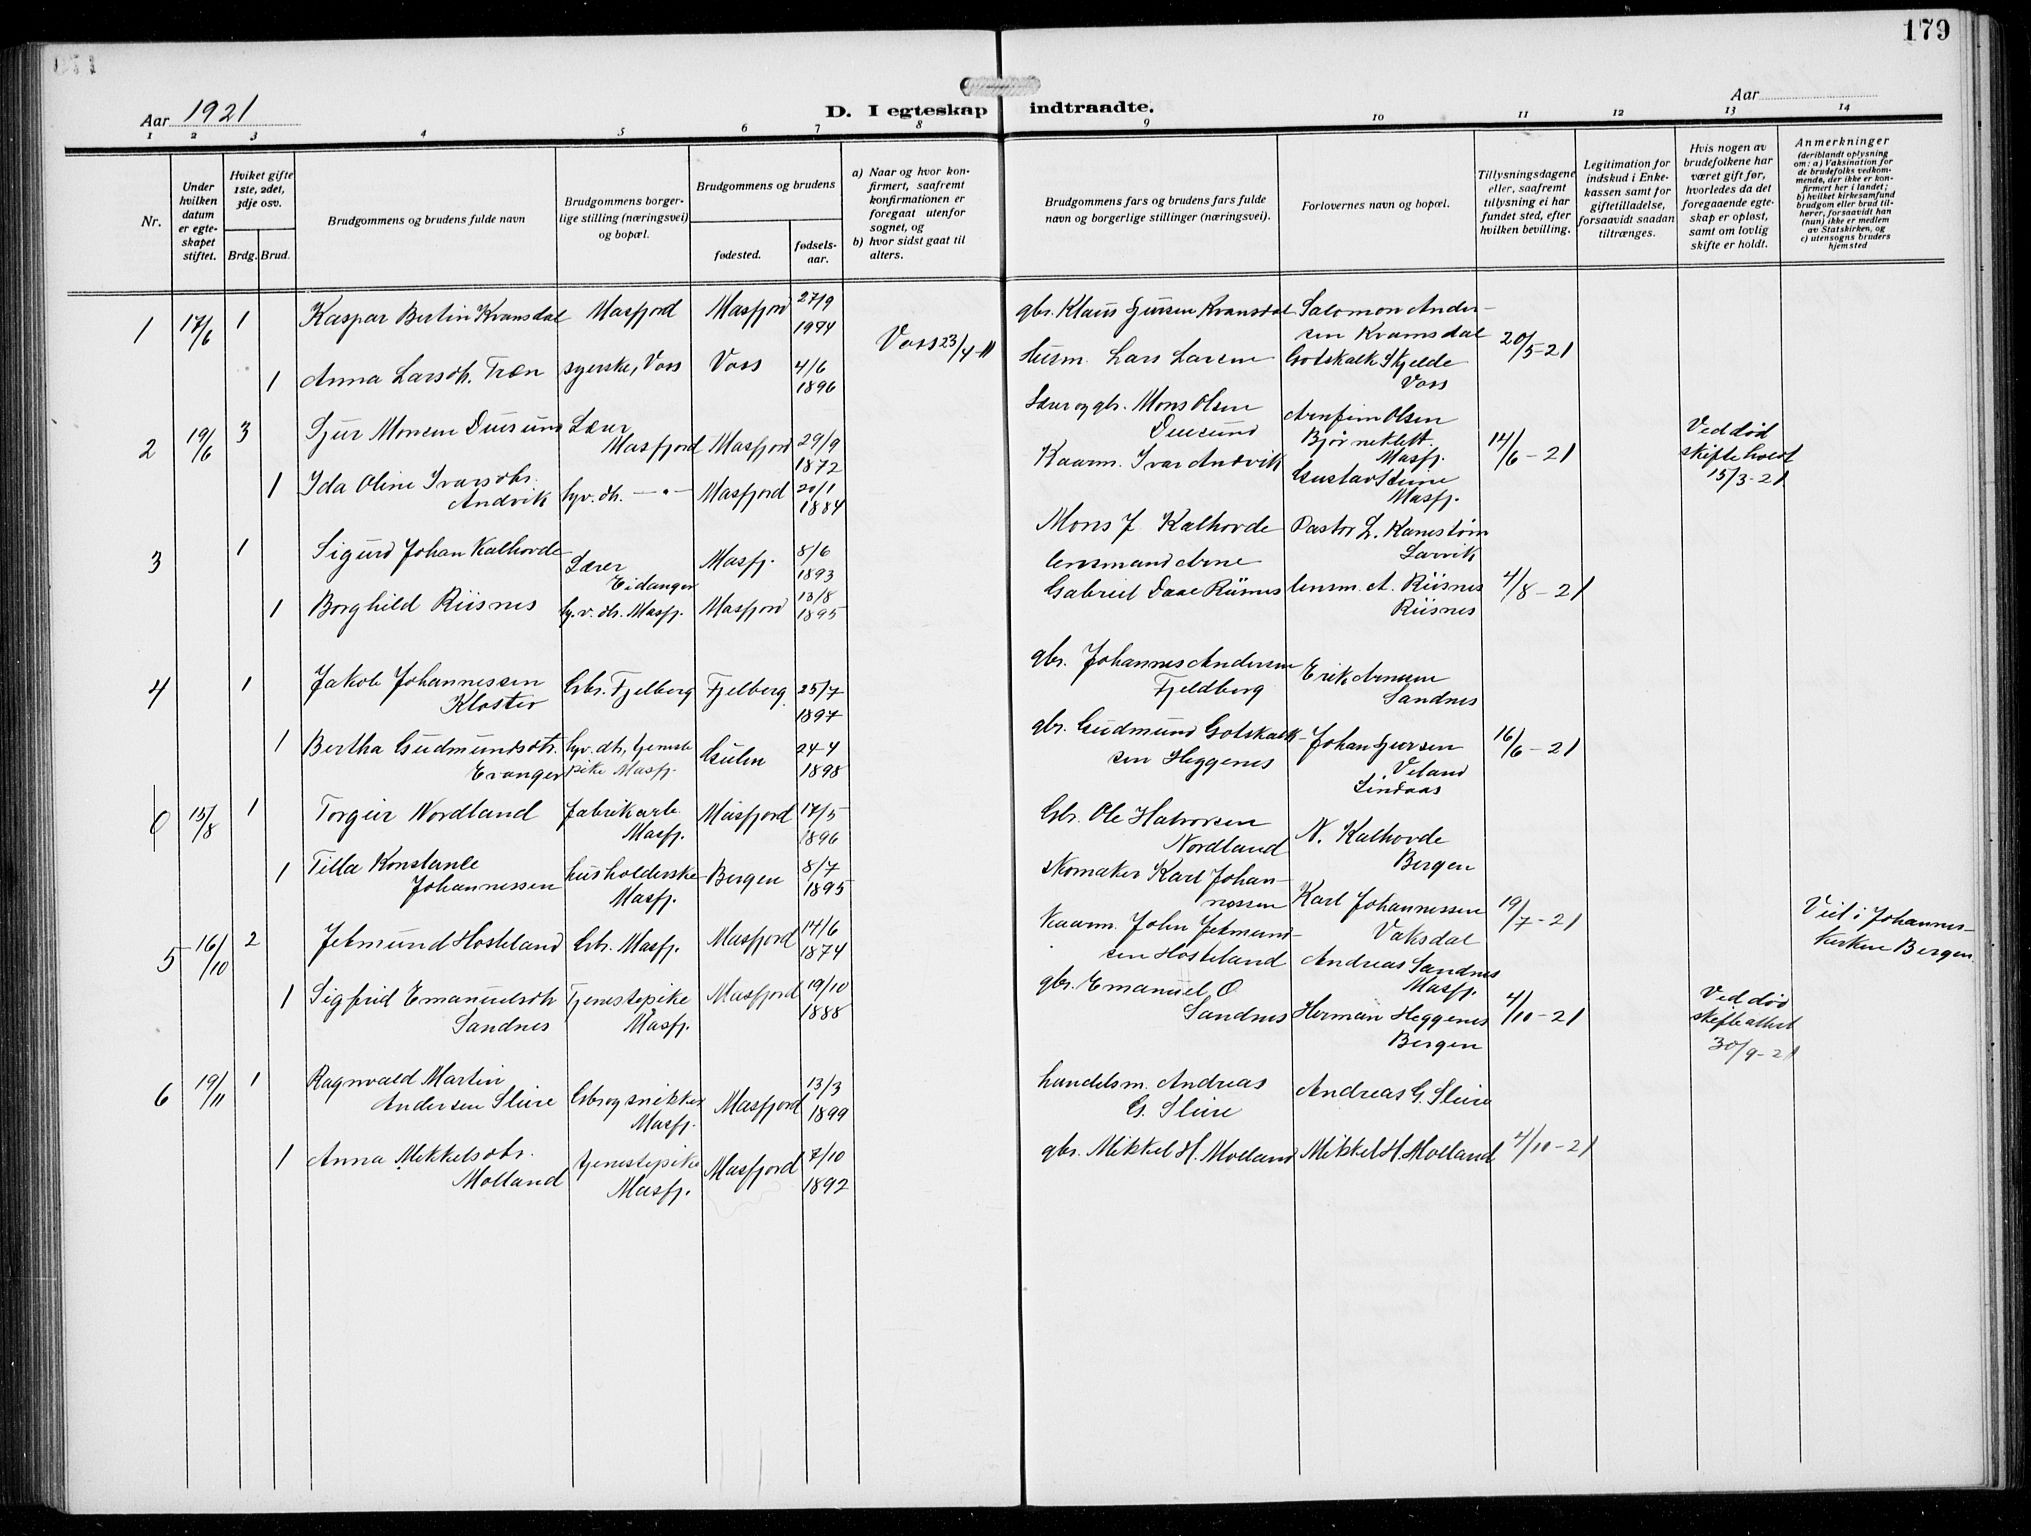 179
Aar 1921
D. I egteskap indtraadte.
Aar
1 2 3 4 5 6 7 8 9 10 11 12 13 14
Nr.
Under hvilken datum er egteskapet stiftet.
Hviket gifte 1ste, 2det, 3dje osv.
Brdg. Brud.
Brudgommens og brudens fulde navn
Brudgommens borgerlige stilling (næringsvei) og bopæl.
Brudgommens og brudens
fødested.
fødselsaar.
a) Naar og hvor konfirmert, saafremt konfirmationen er foregaat utenfor sognet, og
b) hvor sidst gaat til alters.
Brudgommens fars og brudens fars fulde navn og borgerlige stillinger (næringsvei).
Forlovernes navn og bopæl.
Tillysningsdagene eller, saafremt tillysning ei har fundet sted, efter hvilken bevilling.
Legitimation for indskud i Enkekassen samt for giftetilladelse, forsaavidt saadan tiltrænges.
Hvis nogen av brudefolkene har været gift før, hvorledes da det foregaaende egteskap er opløst, samt om lovlig skifte er holdt.
Anmerkninger
(deriblandt oplysning om: a) Vaksination for de brudefolks vedkommende, der ikke er konfirmert her i landet; b) hvilket kirkesamfund brudgom eller brud tilhører, forsaavidt han (hun) ikke er medlem av Statskirken, og c) utensogns bruders hjemsted
1 17/6 1 Kaspar Bertin Kvamsdal Masfjord Masfjord 27/9 1994 gbr. Klaus Sjursen Kvamsdal Salomon Andersen Kvamsdal 20/5-21
1 Anna Larsdtr. Træn syerske, Voss Voss 4/6 1896 Voss 23/4-11 Husm. Lars Larsen Gotskalk Skjelde Voss
2 19/6 3 Sjur Monsen Duesund Lærer Masfjord Masfjord 29/9 1872 Lærer og gbr. Mons Olsen Duesund Arnfinn Olsen Bjørneklett Masfj. 14/6-21 Ved død skifte holdt 15/3-21
1 Ida Oline Ivarsdtr. Andvik gv. dtr. -"- Masfjord 20/1 1884 Kaarm. Ivar Andvik Gustav Steine Masfj.
3 1 Sigurd Johan Kalhovde Lærer Eidanger Masfj. 8/6 1893 Mons J Kalhovde Pastor L. Larvik
1 Borghild Riisnes g.v. dtr. Masfj. Masfjord 13/8 1895 lensmand Arne Gabriel Daae Riisnes lensm. A. Riisnes Riisnes 4/8-21
4 1 Jakob Johannessen Kloster Gbr. Fjelberg Fjelberg 25/7 1897 gbr. Johannes Andersen Fjeldberg Erik Arnesen Sandnes
1 Bertha Gudmundsdtr. Evanger gv. dtr, tjenestepike Masfj. Gulen 24-4 1898 gbr. Gudmund Gotskalksen Heggenes Johan Sjursen Veland Lindaas 16/6-21
0 15/8 1 Torgeir Nordland fabrikarb Masfj. Masfjord 17/5 1896 Gbr. Ole Halvorsen Nordland N. Kalhovde Bergen
1 Tilla Konstance Johannessen husholderske Masfj. Bergen 8/7 1895 Skomaker Karl Johannessen Karl Johannessen Vaksdal 19/7-21 Viet i Johanneskirken Bergen.
5 16/10 2 Jetmund Hosteland Gbr. Masfj. Masfjord 14/6 1874 Kaarm. John Jetmundsen Hosteland Andreas Sandnes Masfj.
1 Sigfrid Emanuelsdtr Sandnes Tjenestepike Masfj. Masfjord 19/10 1888 gbr. Emanuel O Sandnes Herman Heggenes Bergen 4/10-21 Ved død skifteattest 30/9-21
6 19/11 1 Ragnvald Martin Andersen Sleire Gbr og snikker Masfj. Masfjord 13/3 1899 handelsm. Andreas G. Sleire Andreas G. Sleire
1 Anna Mikkelsdtr. Molland tjenestepike Masfj. Masfjord 7/10 1892 gbr. Mikkel H. Molland Mikkel H. Molland 4/10-21